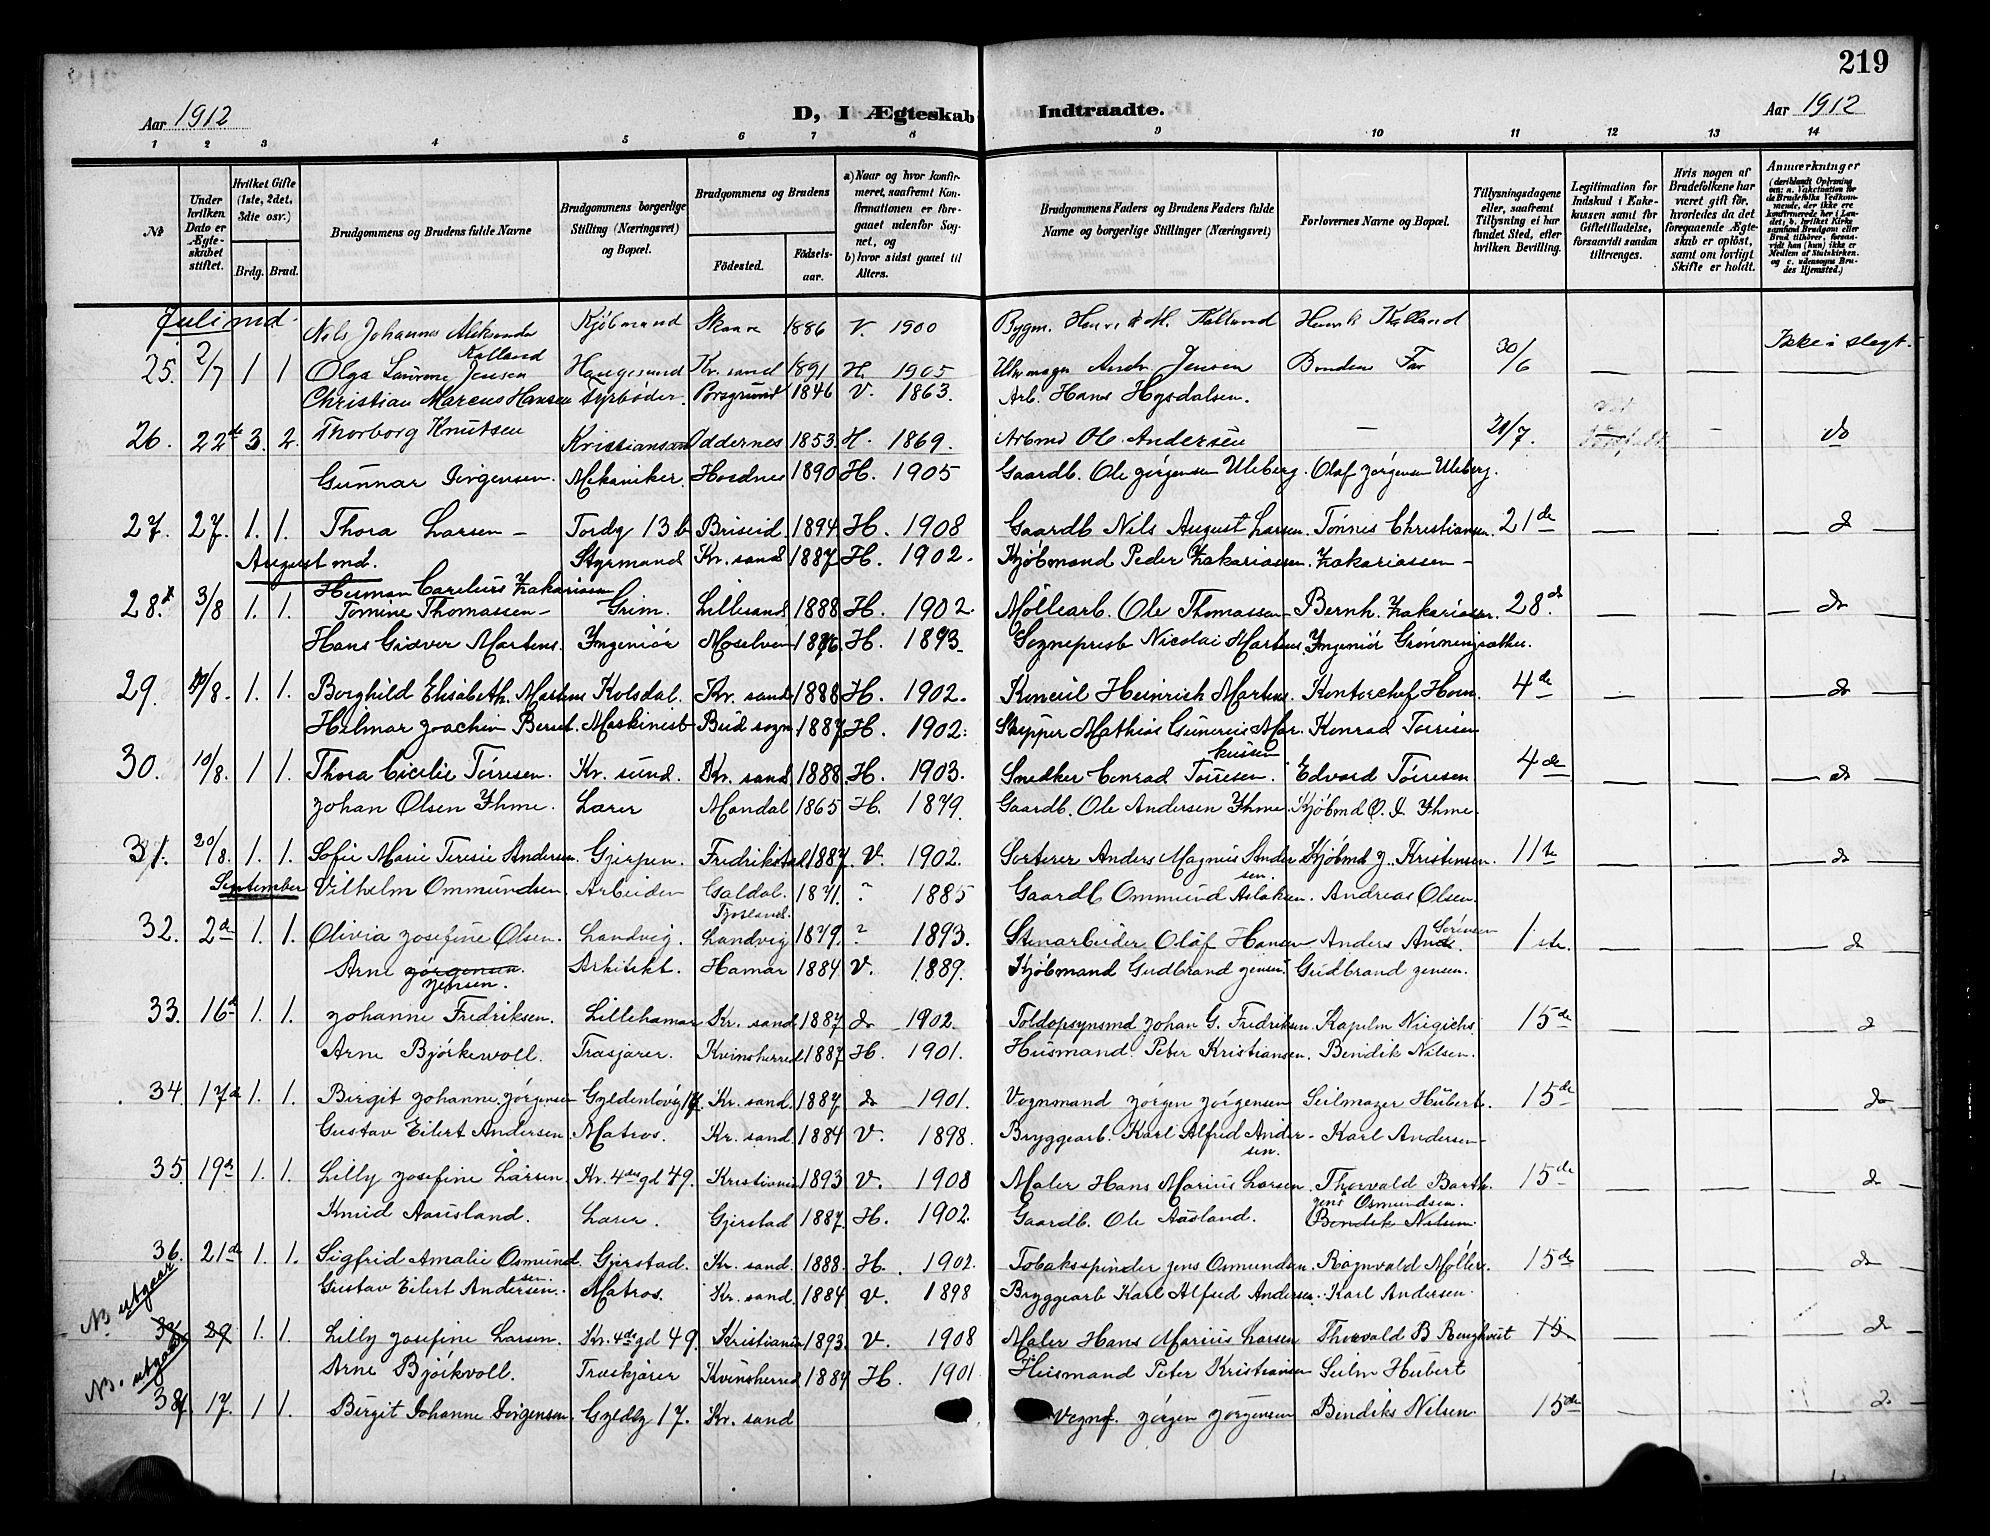 219
Aar 1912
D, I Ægteskab Indtraadte.
Aar 1912
1 2 3 4 5 6 7 8 9 10 11 12 13 14
№
Under hvilken Dato er Ægteskabet stiftet.
Hvilket Gifte (1ste, 2det, 3die osv.)
Brdg. Brud.
Brudgommens og Brudens fulde Navne
Brudgommens borgerlige Stilling (Næringsvei) og Bopæl.
Brudgommens og Brudens
Fødested. Fødselsaar.
a) Naar og hvor konfirmeret, saafremt Konfirmationen er foregaaet udenfor Sognet, og
b) hvor sidst gaaet til Alters.
Brudgommens Faders og Brudens Faders fulde Navne og borgerlige Stillinger (Næringsvei)
Forlovernes Navne og Bopæl.
Tillysningsdagene eller, saafremt Tillysning ei har fundet Sted, efter hvilken Bevilling.
Legitimation for Indskud i Enkekassen samt for Giftetilladelse, forsaavidt saadan tiltrænges.
Hvis nogen af Brudefolkene har været gift før, hvorledes da det foregaaende Ægteskab er opløst, samt om lovligt Skifte er holdt.
Anmærkninger
(deriblandt Oplysning om: a. Vakcination for de Brudefolks Vedkommende, der ikke ere konfirmerede her i Landet, b. hvilket Kirkesamfund Brudgom eller Brud tilhører, forsaavidt han (hun) ikke er Medlem af Statskirken, og c. udensogns Brudes Hjemsted.)
Juli md.
Nils Johannes Aleksander Kalland Kjøbmand Skaare 1886 V. 1900 Bygm. Henrik M. Kalland Henrik Kalland
25. 2/7 1 1 Olga Laurene Jensen Haugesund Kr. sand 1891 H. 1905 Andr. Jensen Brudens Far 30/6 — — Ikke i slegt.
Christian Marcus Hansen Fyrbøder. Porsgrund 1846 V. 1863. Arb. Hans Hysdalsen.
26. 22de 3. 2. Thorborg Knutsen Kristiansand Oddernes 1853. H. 1869. Arbmd Ole Andersen — 21/7. — do
Gunnar Jørgensen. Mekaniker. 1890 H. 1905 Gaardb. Ole Jørgensen Uleberg. Olaf Jørgensen Uleberg.
27. 27. 1. 1. Thora Larsen — Tordg 13 b Briseid. 1894. H. 1908 Gaardb Nils August Larsen. Tønnes Christiansen. 21de — — do
August md.
Herman Carelius Zakariassen Styrmand Kr. sand 1887 H. 1902. Kjøbmand Peder Zakariassen. Zakariassen —
28. 3/8 1. 1. Tomine Thomassen — Grim. Lillesand 1888 H. 1902. Møllearb. Ole Thomassen — Bernh. Zakariassen. 28de — — do
Hans Gidver Martens. Ingeniør Moselven 1876. H. 1893. Sogneprest Nicolai Martens. Ingeniør Grønningsæther.
29. 10/8. 1. 1. Borghild Elisabeth. Martens Kolsdal. Kr. sand 1888 H. 1902. Konsul Heinrich Martens. Kontorchef Horn. 4de — — do
Hilmar Joachim Berset. Maskinest Bud sogn 1887 H. 1902. Skipper Mathias Gunerius Markussen Konrad Torrisen
30. 10/8. 1 1. Thora Cicilie Tørresen. Kr. sund. Kr. sand 1888. H. 1903. Snedker Conrad Tørresen. Edvard Tørresen. 4de — — do
Johan Olsen Ihme. Lærer Mandal 1865 H. 1879. Gaardb. Ole Andersen Ihme. Kjøbmd O. I. Ihme.
31. 20/8. 1. 1. Sofie Marie Teresie Andersen. Gjerpen. Fredrikstad 1887. V. 1902. Sorterer Anders Magnus Andersen. Kjøbmd J. Kristensen. 11te — — do
September
Vilhelm Ommundsen. Arbeider Galdal. Fjosland. 1871. " 1885 Gaardb Ommund Aslaksen. Andreas Olsen.
32. 2de 1. 1. Olivia Josefine Olsen. Landvig. Landvig 1879. " 1893. Stenarbeider Olaf Hansen Anders Sørensen 1ste. — — do
Arne Jørgensen. Jensen. Arkitekt. Hamar 1884 V. 1889. Kjøbmand Gudbrand Jensen. Gudbrand Jensen.
33. 16de 1. 1. Johanne Fredriksen. Lillehamar Kr. sand. 1887 do 1902. Toldopsynsmd Johan G. Fredriksen. 15de — — do
Arne Bjørkevoll. Træskjærer. Kvinsherred 1887 H. 1901. Husmand. Peter Kristiansen. Bendik Nilsen.
34. 17de 1. 1. Birgit Johanne. Jørgensen Gyldenløvsg 17. Kr. sand. 1887 do 1901. Vognmand Jørgen Jørgensen Seilmager Hubert. 15de — — do
Gustav Eilert Andersen. Matros. Kr. sand. 1884 V. 1898. Bryggearb. Karl Alfred Andersen. Karl Andersen —
35. 19de 1. 1. Lilly Josefine Larsen. Kr. 4des gd 49. Kristiania 1893 V. 1908 Maler Hans Marius Larsen. Thorvald Barth. 15de — — do
Knud Aausland. Lærer. Gjerstad 1887. H. 1902. Gaardb. Ole Aasland. Jens Osmundsen. Bendik Nilsen.
36. 21de 1. 1. Sigfrid Amalie Osmundsen. Gjerstad. Kr. sand. 1888. H. 1902. Tobaksspinder Jens Osmundsen. Ragnvald Møller. 15de — — do
N. utgaar Gustav Eilert Andersen. Matros. Kr. sand. 1884 V. 1898 Bryggearb Karl Alfred Andersen. Karl Andersen.
29 1. 1. Lilly Josefine Larsen. Kr. 4de gd 49. Kristiania 1893. V. 1908 Maler Hans Marius Larsen Thorvald B. 15 — — do
N. utgaar Arne Bjørkvoll. Træskjærer Kvinsherred 1887 H. 1901 Husmand Peter Kristiansen Seilm Hubert
38. 17. 1 1. Birgit Johanne Jørgensen. Gyldlg 17. Kr. sand Jørgen Jørgensen Bendiks Nilsen. 15de — — do